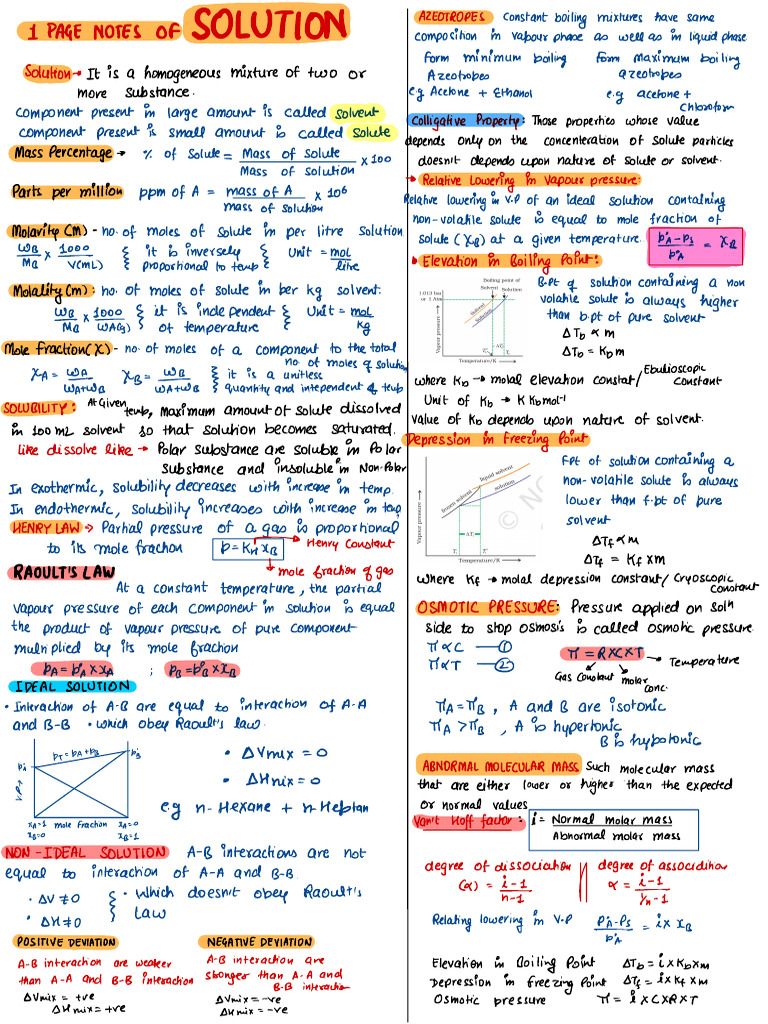 1 PAGE NOTES OF SOLUTION
Solution → It is a homogeneous mixture of two or
more substance.
Component present in large amount is called solvent
component present is small amount is called solute
Mass Percentage → % of Solute = Mass of Solute / Mass of solution × 100
Parts per million ppm of A = mass of A / mass of solution × 10⁶
Molarity (M) - no. of moles of solute in per litre solution
W_B / M_B × 1000 / V(mL) { it is inversely proportional to temp { Unit = mol / litre
Molality (m) : no. of moles of solute in per kg solvent.
W_B / M_B × 1000 / W_A(g) { it is independent of temperature { Unit = mol / kg
Mole fraction (x) - no. of moles of a component to the total
no. of moles of solution
x_A = n_A / n_A+n_B x_B = n_B / n_A+n_B { it is a unitless
quantity and independent of temp
SOLUBILITY : At Given temp, Maximum amount of solute dissolved
in 100 mL solvent so that solution becomes saturated.
like dissolve like → Polar substance are soluble in Polar
Substance and insoluble in Non-Polar
In exothermic, solubility decreases with increase in temp.
In endothermic, solubility increases with increase in temp
HENRY LAW → Partial pressure of a gas is proportional
to its mole fraction p = K_H x_B → Henry Constant
→ mole fraction of gas
RAOULT'S LAW
At a constant temperature, the partial
vapour pressure of each component in solution is equal
the product of vapour pressure of pure component
multiplied by its mole fraction
p_A = p°_A × x_A ; p_B = p°_B × x_B
IDEAL SOLUTION
• Interaction of A-B are equal to interaction of A-A
and B-B • which obey Raoult's law.
p_T = p_A + p_B
p°_A
p°_B
V.P →
x_A=1 mole fraction x_A=0
x_B=0 x_B=1
• ΔVmix = 0
• ΔHmix = 0
e.g n-Hexane + n-Heptan
NON-IDEAL SOLUTION A-B interactions are not
equal to interaction of A-A and B-B.
• ΔV ≠ 0 { • Which doesn't obey Raoult's
• ΔH ≠ 0 { Law
POSITIVE DEVIATION
A-B interaction are weaker
than A-A and B-B interaction
ΔVmix = +ve
ΔHmix = +ve
NEGATIVE DEVIATION
A-B interaction are
stronger than A-A and
B-B interaction
ΔVmix = -ve
ΔHmix = -ve
AZEOTROPES Constant boiling mixtures have same
composition in vapour phase as well as in liquid phase
form minimum boiling
Azeotropes
e.g Acetone + Ethanol
form maximum boiling
azeotropes
e.g acetone +
Chloroform
Colligative Property : Those properties whose value
depends only on the concenteration of solute particles
doesn't depends upon nature of solute or solvent.
→ Relative Lowering in Vapour pressure:
Relative lowering in V.P of an ideal solution containing
non-volatile solute is equal to mole fraction of
solute (x_B) at a given temperature. p°_A - p_s / p°_A = x_B
→ Elevation in Boiling Point:
Boiling point of
Solvent Solution
1.013 bar
or 1 Atm
Solvent
Solution
ΔT_b
Vapour pressure →
Temperature/K →
B.pt of solution containing a non
volatile solute is always higher
than b.pt of pure solvent
ΔT_b ∝ m
ΔT_b = K_b m
where K_b → molal elevation constat/ Ebullioscopic
Constant
Unit of K_b → K Kg mol⁻¹
Value of K_b depends upon nature of solvent.
Depression in Freezing Point
frozen solvent
liquid solvent
solution
ΔT_f
Vapour pressure →
T_f T_f°
Temperature/K →
© NC
F.Pt of solution containing a
non-volatile solute is always
lower than f.pt of pure
solvent
ΔT_f ∝ m
ΔT_f = K_f × m
where K_f → molal depression constant/ Cryoscopic
Constant
OSMOTIC PRESSURE: Pressure applied on soln
side to stop osmosis is called osmotic pressure.
π ∝ C — ①
π ∝ T — ②
π = R × C × T → Temperature
Gas Constant molar
conc.
π_A = π_B , A and B are isotonic
π_A > π_B , A is hypertonic
B is hypotonic
ABNORMAL MOLECULAR MASS Such molecular mass
that are either lower or higher than the expected
or normal values
Van't Hoff factor : i = Normal molar mass / Abnormal molar mass
degree of dissociation
(α) = i-1 / n-1
degree of association
α = i-1 / 1/n-1
Relating lowering in V.P p°_A - p_s / p°_A = i × x_B
Elevation in Boiling Point ΔT_b = i × K_b × m
Depression in freezing Point ΔT_f = i × K_f × m
Osmotic pressure π = i × C × R × T